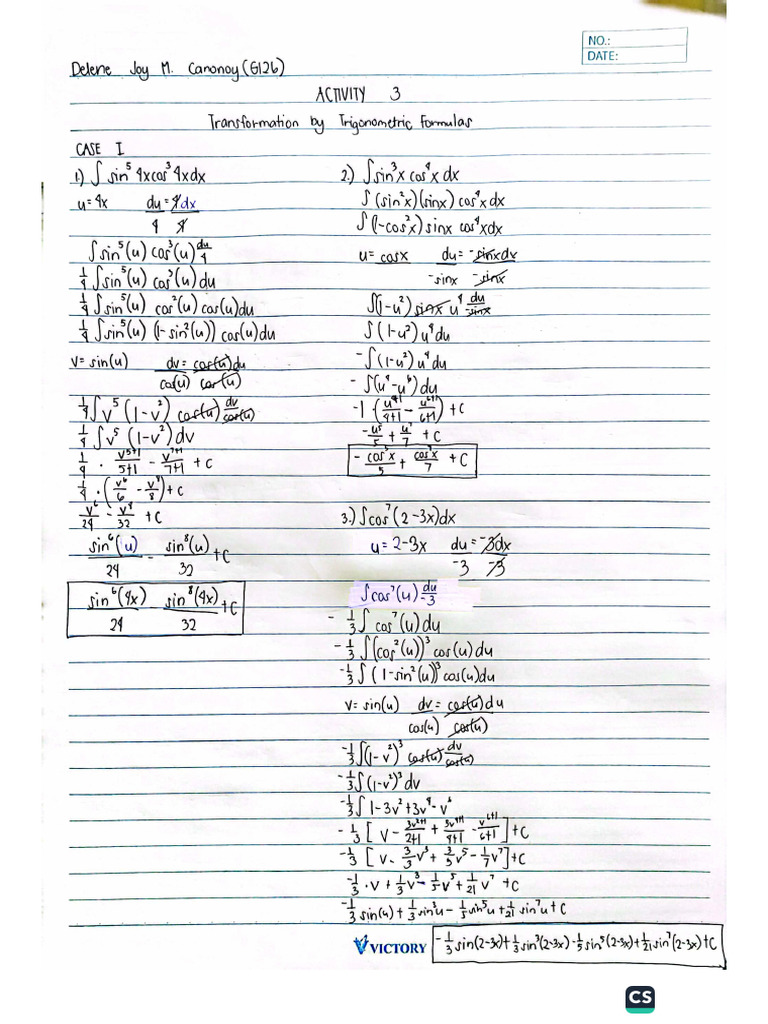 NO.:
DATE:
Delene Joy M. Canonoy (G12b)
ACTIVITY 3
Transformation by Trigonometric Formulas
CASE I
1) ∫ sin⁵ 4x cos³ 4x dx
u = 4x du/4 = 4dx/4
∫ sin⁵(u) cos³(u) du/4
1/4 ∫ sin⁵(u) cos³(u) du
1/4 ∫ sin⁵(u) cos²(u) cos(u) du
1/4 ∫ sin⁵(u) (1 - sin²(u)) cos(u) du
v = sin(u) dv/cos(u) = cos(u)du/cos(u)
1/4 ∫ v⁵ (1 - v²) cos(u) dv/cos(u)
1/4 ∫ v⁵ (1 - v²) dv
1/4 · v⁵⁺¹/5+1 - v⁷⁺¹/7+1 + C
1/4 · (v⁶/6 - v⁸/8) + C
v⁶/24 - v⁸/32 + C
sin⁶(u)/24 - sin⁸(u)/32 + C
sin⁶(4x)/24 - sin⁸(4x)/32 + C
2.) ∫ sin³ x cos⁴ x dx
∫ (sin² x) (sin x) cos⁴ x dx
∫ (1 - cos² x) sin x cos⁴ x dx
u = cos x du/-sin x = -sin x dx/-sin x
∫ (1 - u²) sin x u⁴ du/-sin x
∫ (1 - u²) u⁴ du
- ∫ (1 - u²) u⁴ du
- ∫ (u⁴ - u⁶) du
-1 · (u⁴⁺¹/4+1 - u⁶⁺¹/6+1) + C
-u⁵/5 + u⁷/7 + C
- cos⁵x/5 + cos⁷x/7 + C
3.) ∫ cos⁷ (2 - 3x) dx
u = 2 - 3x du/-3 = -3dx/-3
∫ cos⁷(u) du/-3
- 1/3 ∫ cos⁷(u) du
- 1/3 ∫ (cos²(u))³ cos(u) du
- 1/3 ∫ (1 - sin²(u))³ cos(u) du
v = sin(u) dv/cos(u) = cos(u)du/cos(u)
- 1/3 ∫ (1 - v²)³ cos(u) dv/cos(u)
- 1/3 ∫ (1 - v²)³ dv
- 1/3 ∫ 1 - 3v² + 3v⁴ - v⁶
- 1/3 [ v - 3v²⁺¹/2+1 + 3v⁴⁺¹/4+1 - v⁶⁺¹/6+1 ] + C
- 1/3 [ v - 3/3 v³ + 3/5 v⁵ - 1/7 v⁷ ] + C
- 1/3 · v + 1/3 v³ - 1/5 v⁵ + 1/21 v⁷ + C
- 1/3 sin(u) + 1/3 sin³u - 1/5 sin⁵u + 1/21 sin⁷u + C
- 1/3 sin(2-3x) + 1/3 sin³(2-3x) - 1/5 sin⁵(2-3x) + 1/21 sin⁷(2-3x) + C
VICTORY
CS